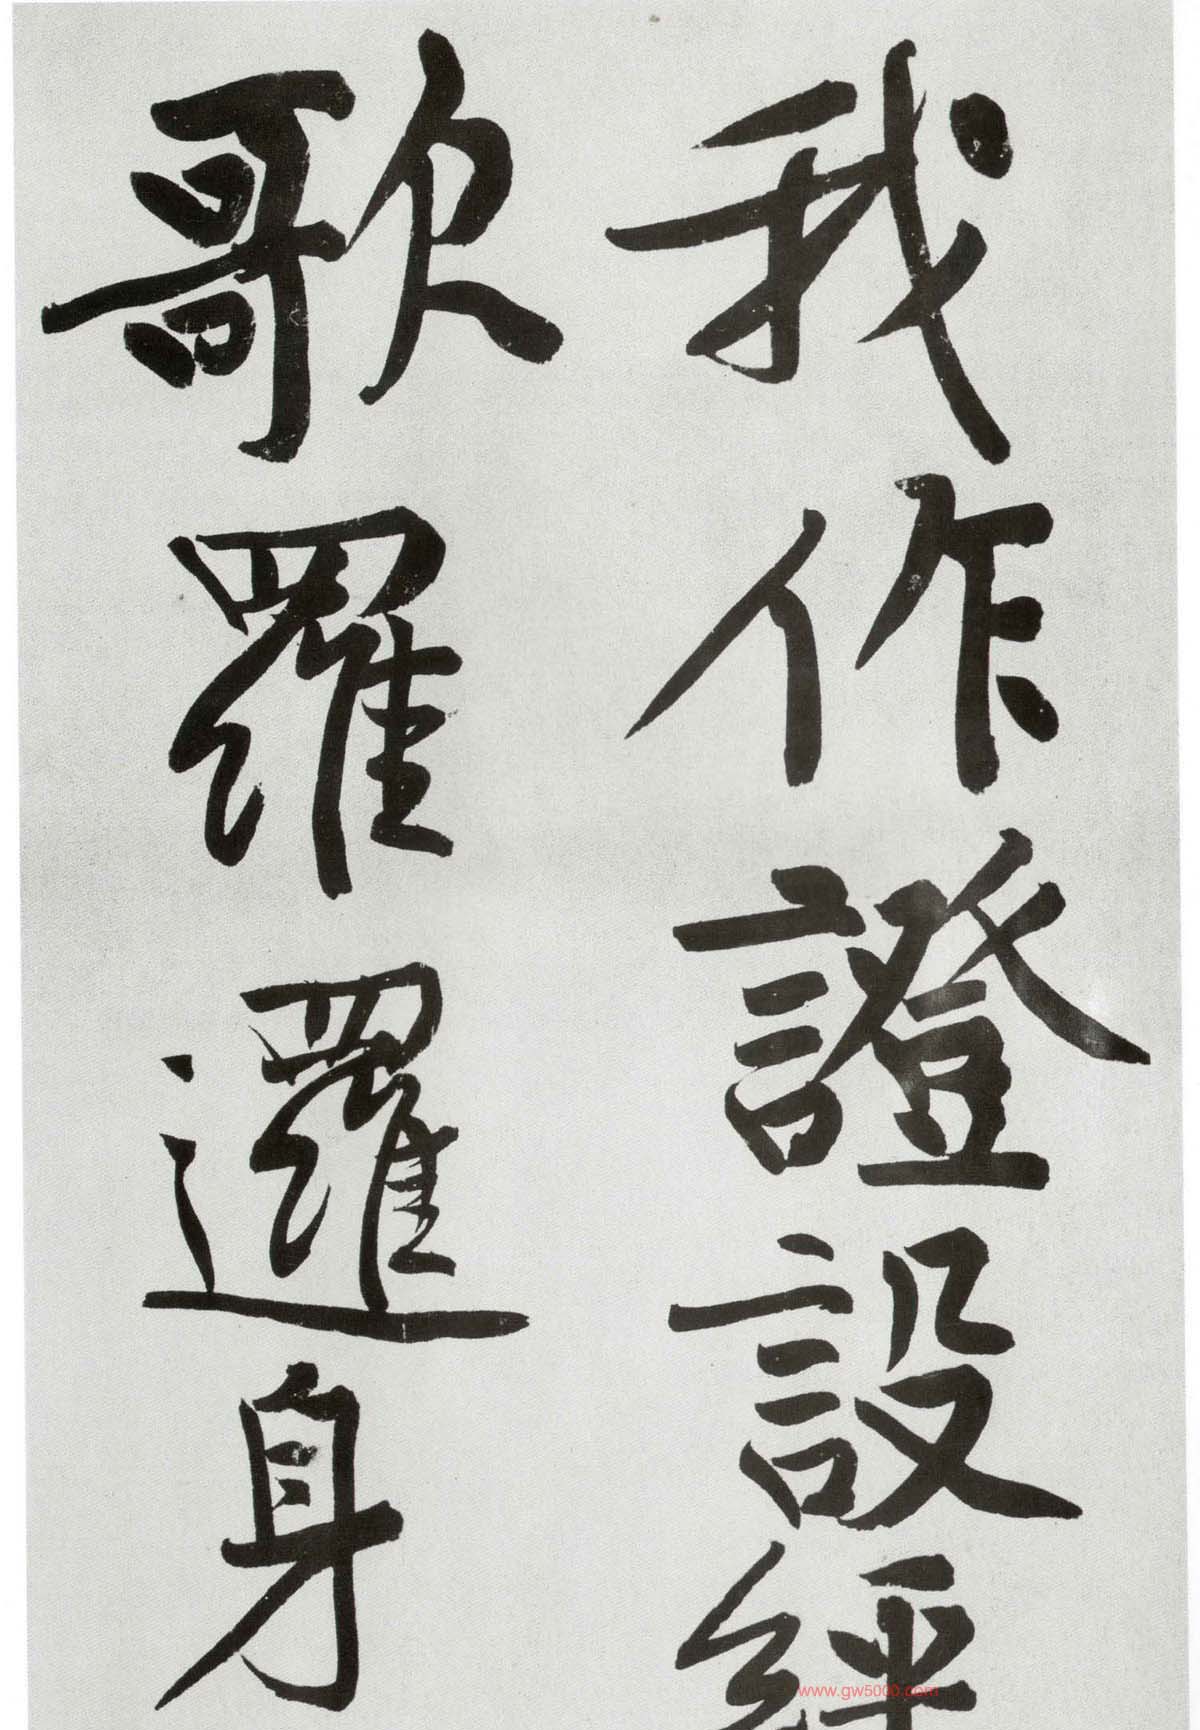 我作證設經
歌羅邏身
www.gw5000.com